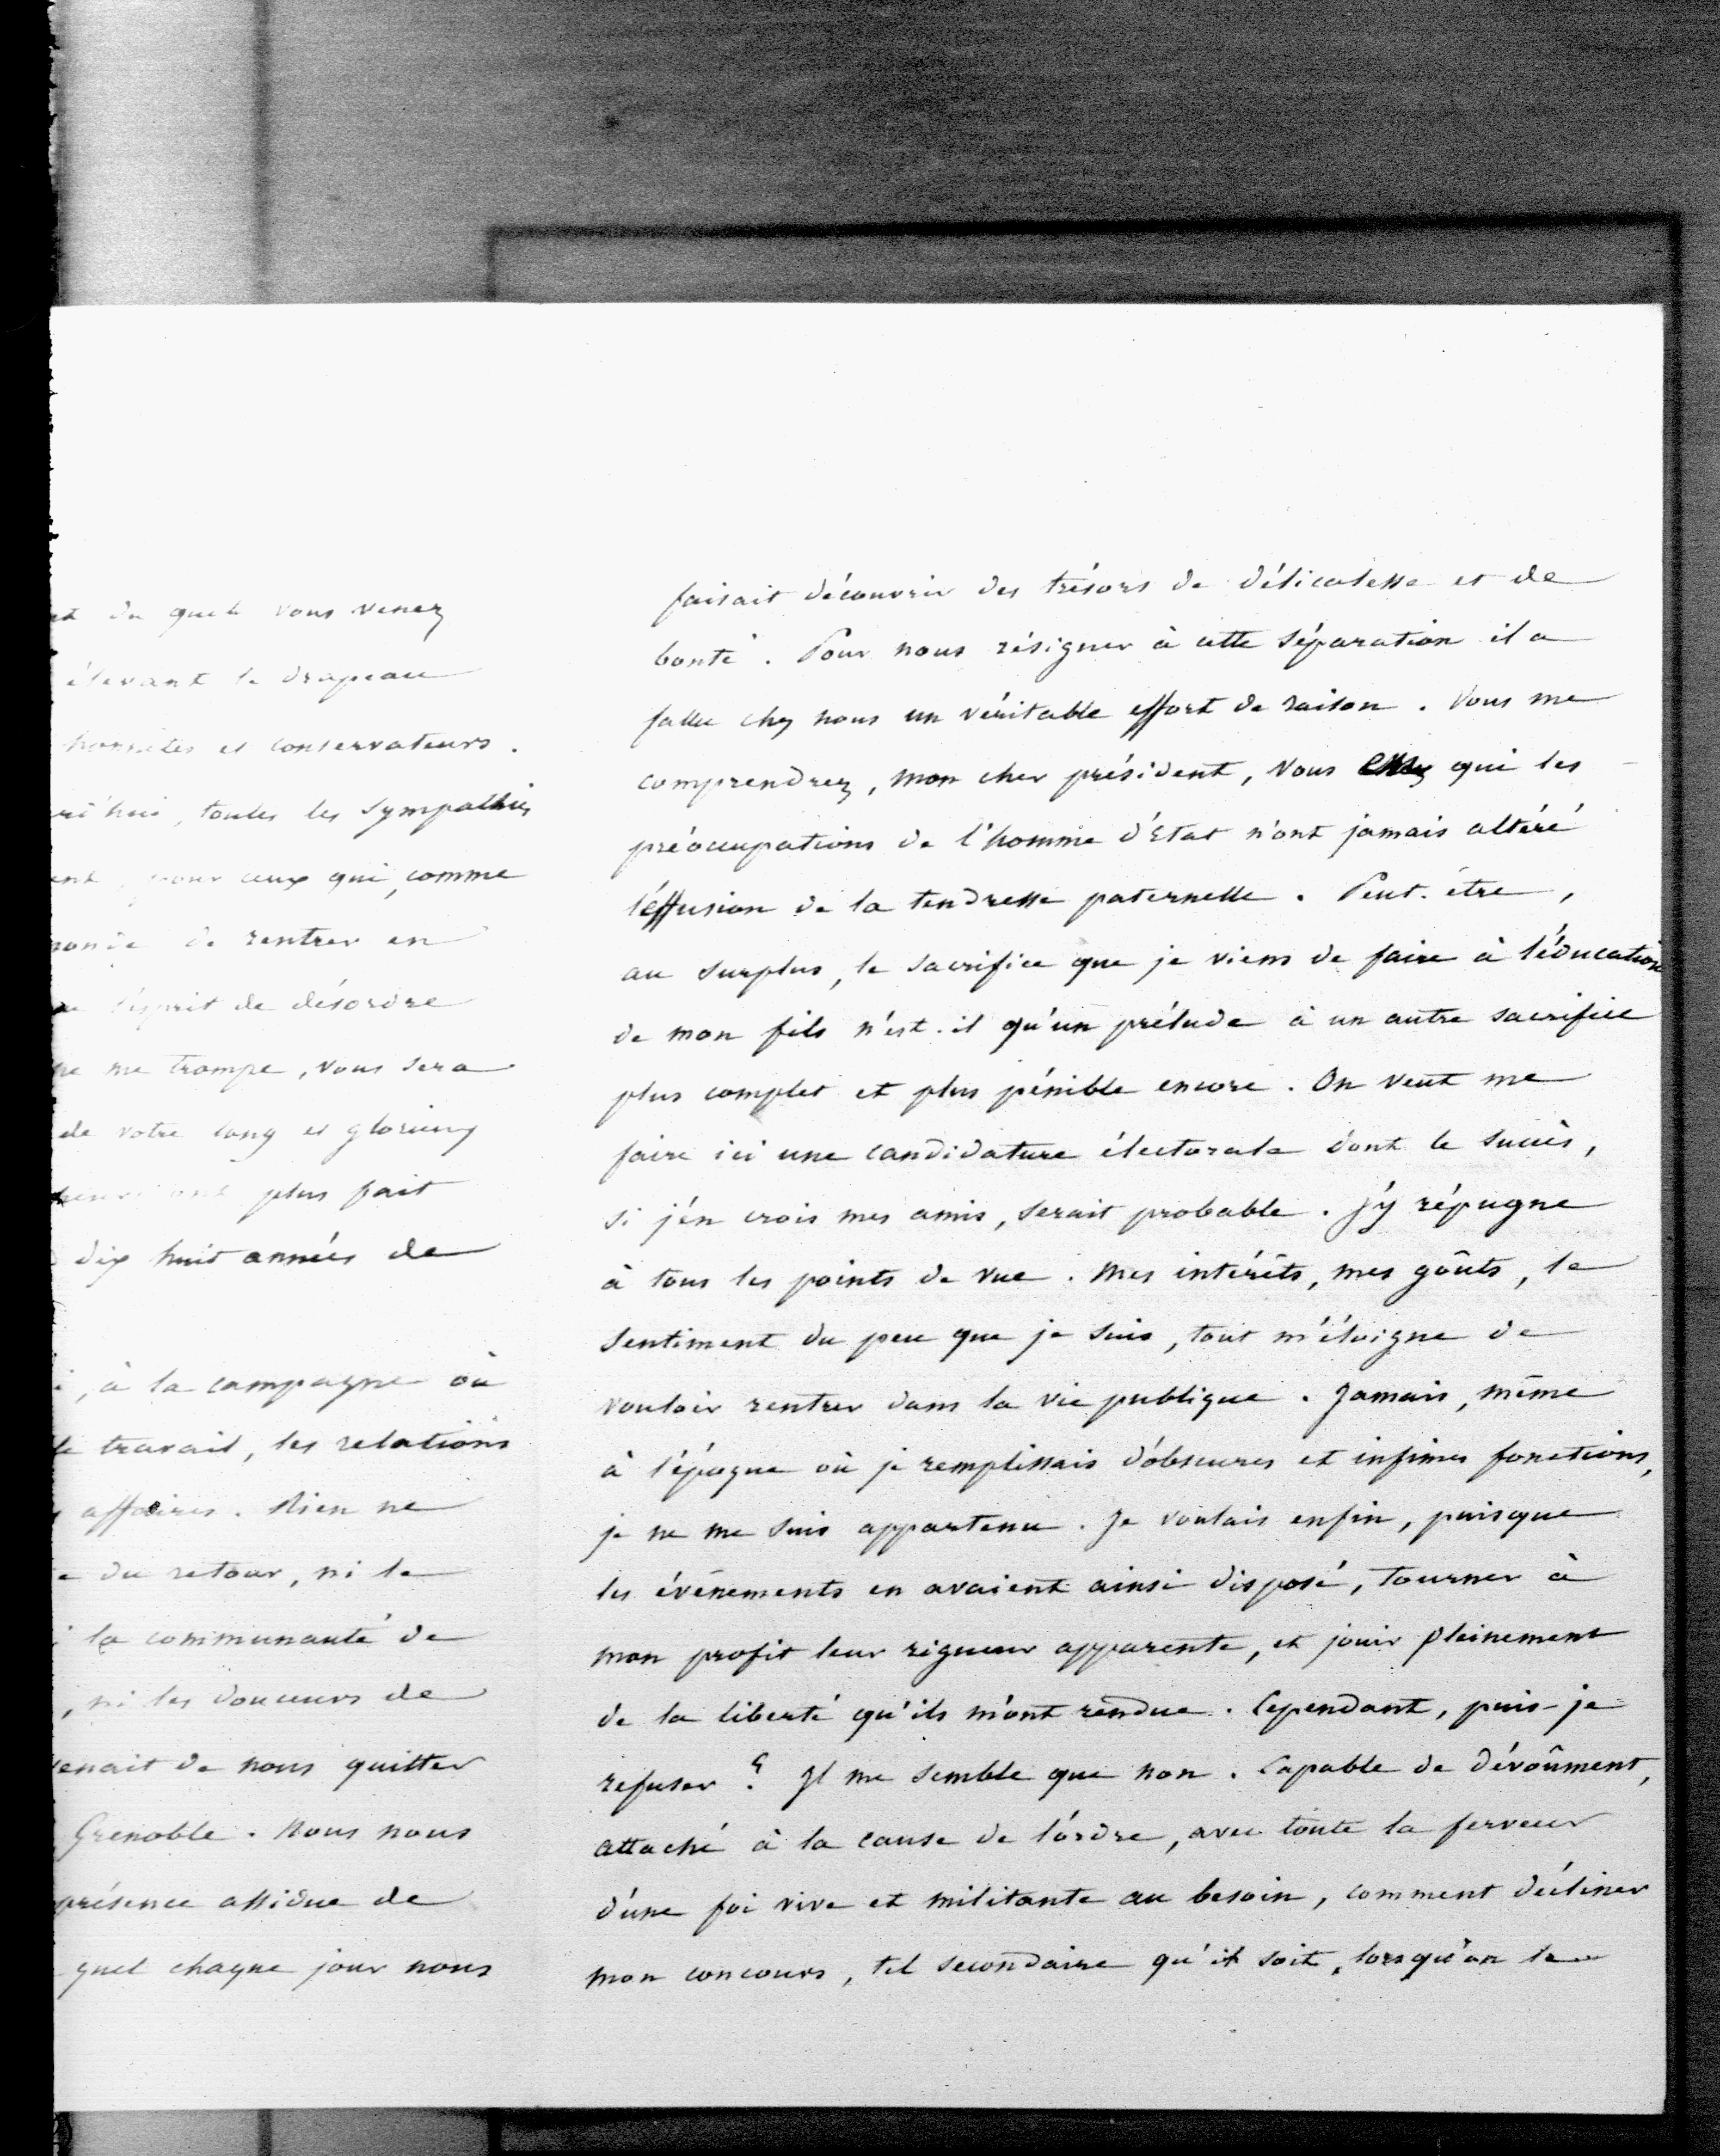 du quel vous venez
élevant le drapeau
honnêtes et conservateurs.
toutes les sympathies
pour ceux qui, comme
de rentrer en
l'esprit de désordre
ne me trompe, vous sera
de votre long et glorieux
plus fait
dix huit années de
, à la campagne où
le travail, les relations
affaires. Rien ne
du retour, ni le
la communauté de
, ni les douceurs de
venait de nous quitter
Grenoble. Nous nous
présence assidue de
quel chaque jour nous
faisait découvrir des trésors de délicatesse et de
bonté. Pour nous résigner à cette séparation il a
fallu chez nous un véritable effort de raison. Vous me
comprendrez, mon cher président, vous qui les
préoccupations de l'homme d'Etat n'ont jamais altéré
l'effusion de la tendresse paternelle. Peut-être,
au surplus, le sacrifice que je viens de faire à l'éducation
de mon fils n'est-il qu'un prélude à un autre sacrifice
plus complet et plus pénible encore. On veut me
faire ici une candidature électorale dont le succès,
si j'en crois mes amis, serait probable. J'y répugne
à tous les points de vue. Mes intérêts, mes goûts, le
sentiment du peu que je suis, tout m'éloigne de
vouloir rentrer dans la vie publique. Jamais, même
à l'époque où je remplissais d'obscures et infimes fonctions,
je ne me suis appartenu. Je voulais enfin, puisque
les événements en avaient ainsi disposé, tourner à
mon profit leur rigueur apparente, et jouir pleinement
de la liberté qu'ils m'ont rendue. Cependant, puis-je
refuser? Il me semble que non. Capable de dévoûment,
attaché à la cause de l'ordre, avec toute la ferveur
d'une foi vive et militante au besoin, comment décliner
mon concours, tel secondaire qu'il soit, lorsqu'on le